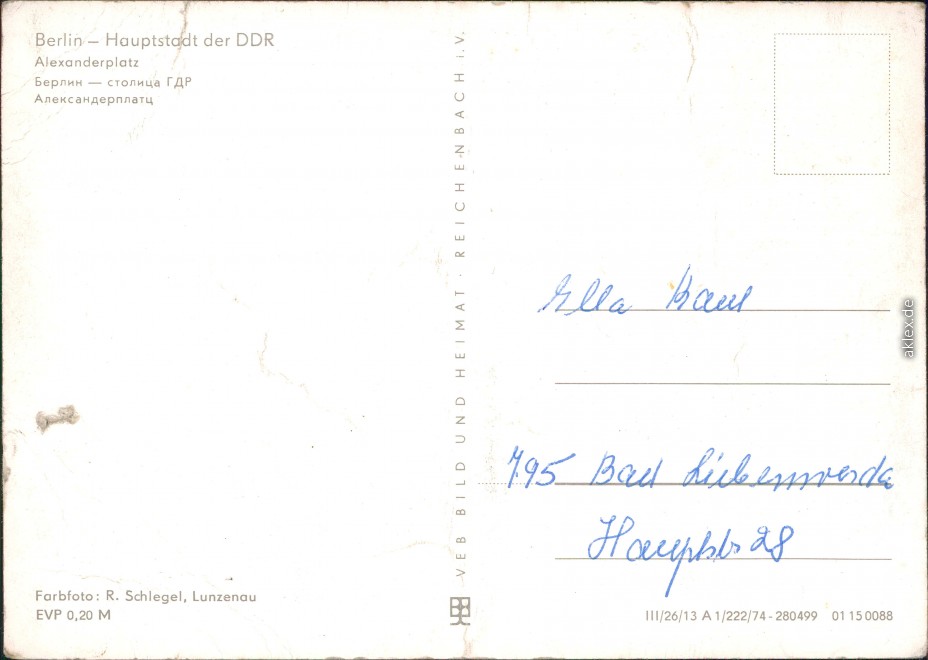 Berlin – Hauptstadt der DDR
Alexanderplatz
Берлин — столица ГДР
Александерплатц
VEB BILD UND HEIMAT · REICHENBACH i.V.
Ella
795 Bad Liebenwerda
Hauptstr 28
Farbfoto: R. Schlegel, Lunzenau
EVP 0,20 M
III/26/13 A 1/222/74-280499 01 15 0088
aklex.de